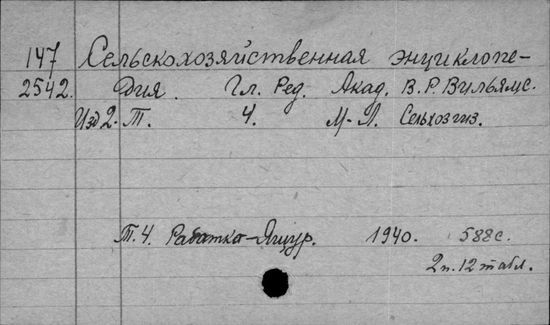 147 Сельскохозяйственная энциклопе-
2542. дия. Гл. Ред. Акад. В.Р. Вильямс.
Изд 2. Т. 4. М-Л. Сельхозгиз.
Т. 4. Рабатка-Ящур. 1940. 588с.
2п. 12 табл.